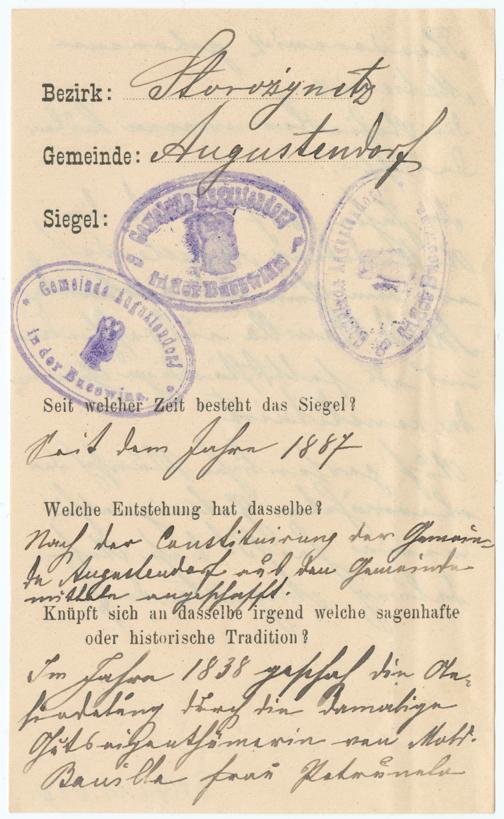 Bezirk: Storozynetz
Gemeinde: Augustendorf
Siegel:
Gemeinde Augustendorf
in der Bucowina
Gemeinde Augustendorf
in der Bucowina
Gemeinde Augustendorf
in der Bucowina
Seit welcher Zeit besteht das Siegel?
Seit dem Jahre 1887
Welche Entstehung hat dasselbe?
Nach der Constituirung der Gemein-
de Augustendorf aus den Gemeinde
mitteln angeschafft.
Knüpft sich an dasselbe irgend welche sagenhafte
oder historische Tradition?
Im Jahre 1838 geschah die An-
siedelung durch die damalige
Gutseigenthümerin von Mold.
Banilla Frau Petrunela